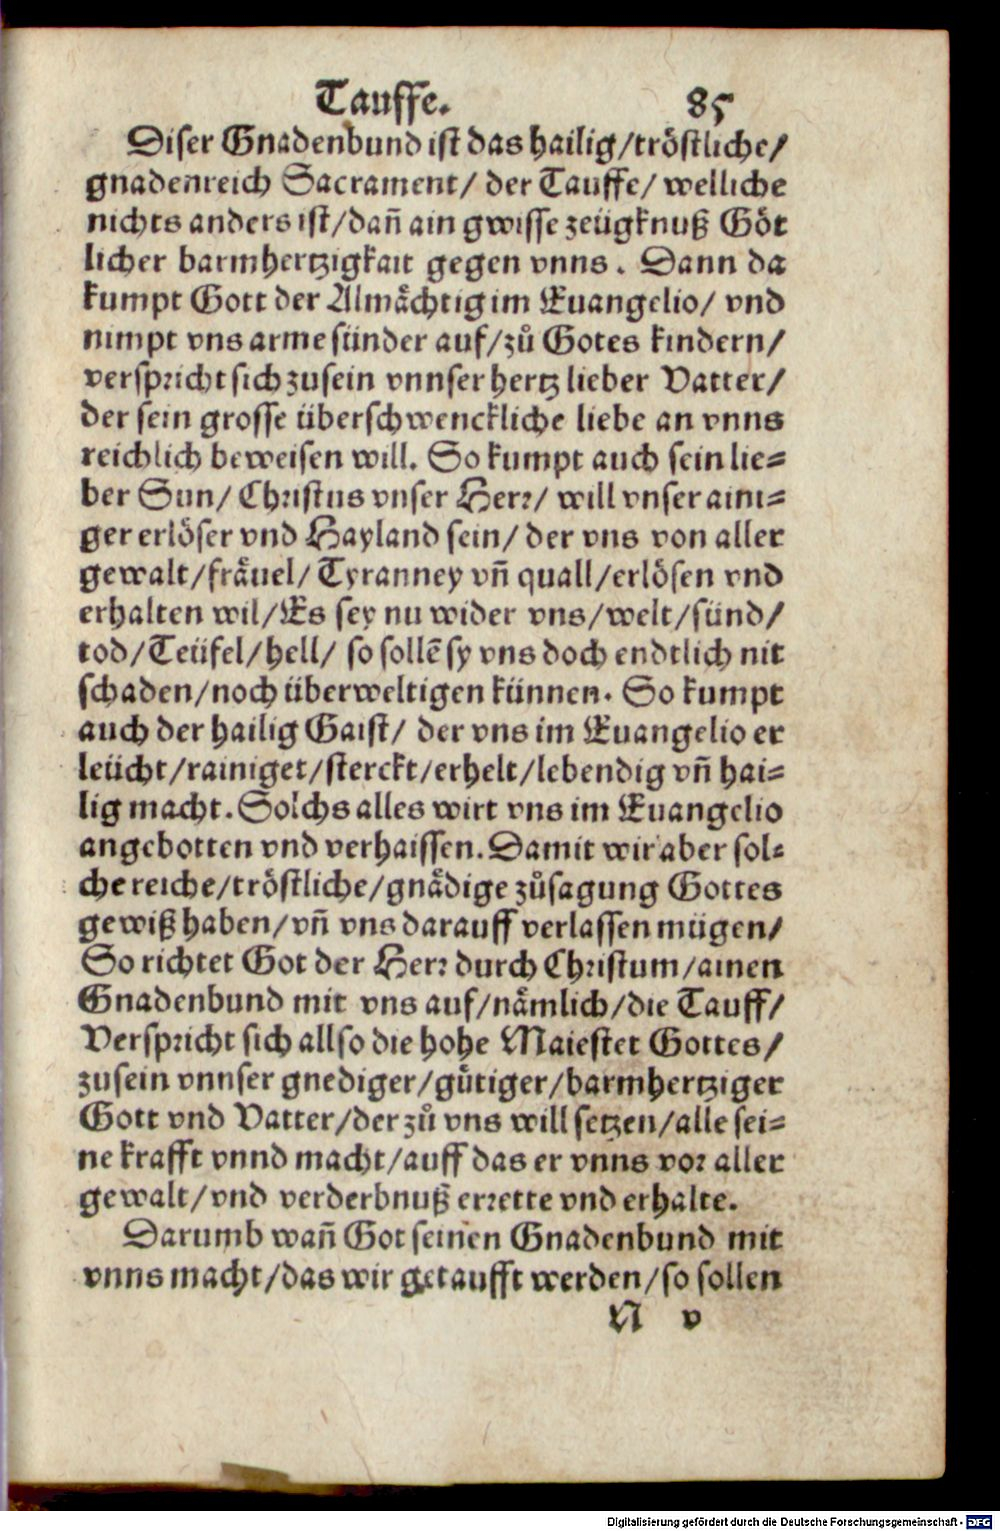 Tauffe. 85
Diser Gnadenbund ist das hailig/tröstliche/
gnadenreich Sacrament/ der Tauffe/ welliche
nichts anders ist/dañ ain gwisse zeügknuß Göt
licher barmhertzigkait gegen vnns. Dann da
kumpt Gott der Almåchtig im Euangelio/ vnd
nimpt vns arme sünder auf/zů Gotes kindern/
verspricht sich zusein vnnser hertz lieber Vatter/
der sein grosse überschwenckliche liebe an vnns
reichlich beweisen will. So kumpt auch sein lie-
ber Sun/ Christus vnser Herr/ will vnser aini-
ger erlöser vnd Hayland sein/ der vns von aller
gewalt/fråuel/Tyranney vñ quall/erlösen vnd
erhalten wil/Es sey nu wider vns/welt/sünd/
tod/Teüfel/hell/ so sollē sy vns doch endtlich nit
schaden/noch überweltigen künnen. So kumpt
auch der hailig Gaist/ der vns im Euangelio er
leücht/rainiget/sterckt/erhelt/lebendig vñ hai-
lig macht. Solchs alles wirt vns im Euangelio
angebotten vnd verhaissen. Damit wir aber sol-
che reiche/tröstliche/gnådige zůsagung Gottes
gewiß haben/vñ vns darauff verlassen mügen/
So richtet Got der Herr durch Christum/ainen
Gnadenbund mit vns auf/nåmlich/die Tauff/
Verspricht sich allso die hohe Maiestet Gottes/
zusein vnnser gnediger/gütiger/barmhertziger
Gott vnd Vatter/der zů vns will setzen/alle sei-
ne krafft vnnd macht/auff das er vnns vor aller
gewalt/vnd verderbnuß errette vnd erhalte.
Darumb wañ Got seinen Gnadenbund mit
vnns macht/das wir getaufft werden/so sollen
N v
Digitalisierung gefördert durch die Deutsche Forschungsgemeinschaft - DFG